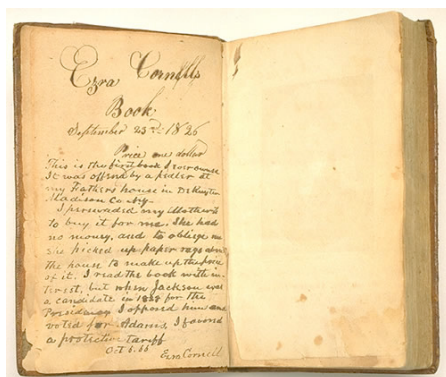 Ezra Cornells
Book.
September 23rd. 1826
Price one dollar
This is the first book I ever owned
It was offered by a pedler at
my Fathers house in DeRuyter
Madison Co N.Y.
I persuaded my Mother
to buy it for me. She had
no money, and to oblige me
she picked up paper rags about
the house to make up the price
of it. I read the book with in-
terest, but when Jackson was
a candidate in 1828 for the
Presidency I opposed him and
voted for Adams. I favored
a protective tariff
Oct 5. 66
Ezra Cornell